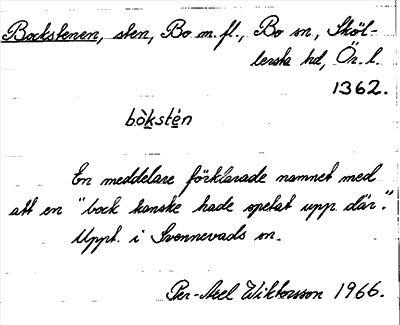 Bockstenen, sten, Bo m.fl., Bo sn, Sköl-
lersta hd, Ör. l.
1362.
bòkstèn
En meddelare förklarade namnet med
att en "bock kanske hade spetat upp där."
Uppt. i Svennevads sn.
Per-Axel Wiktorsson 1966.